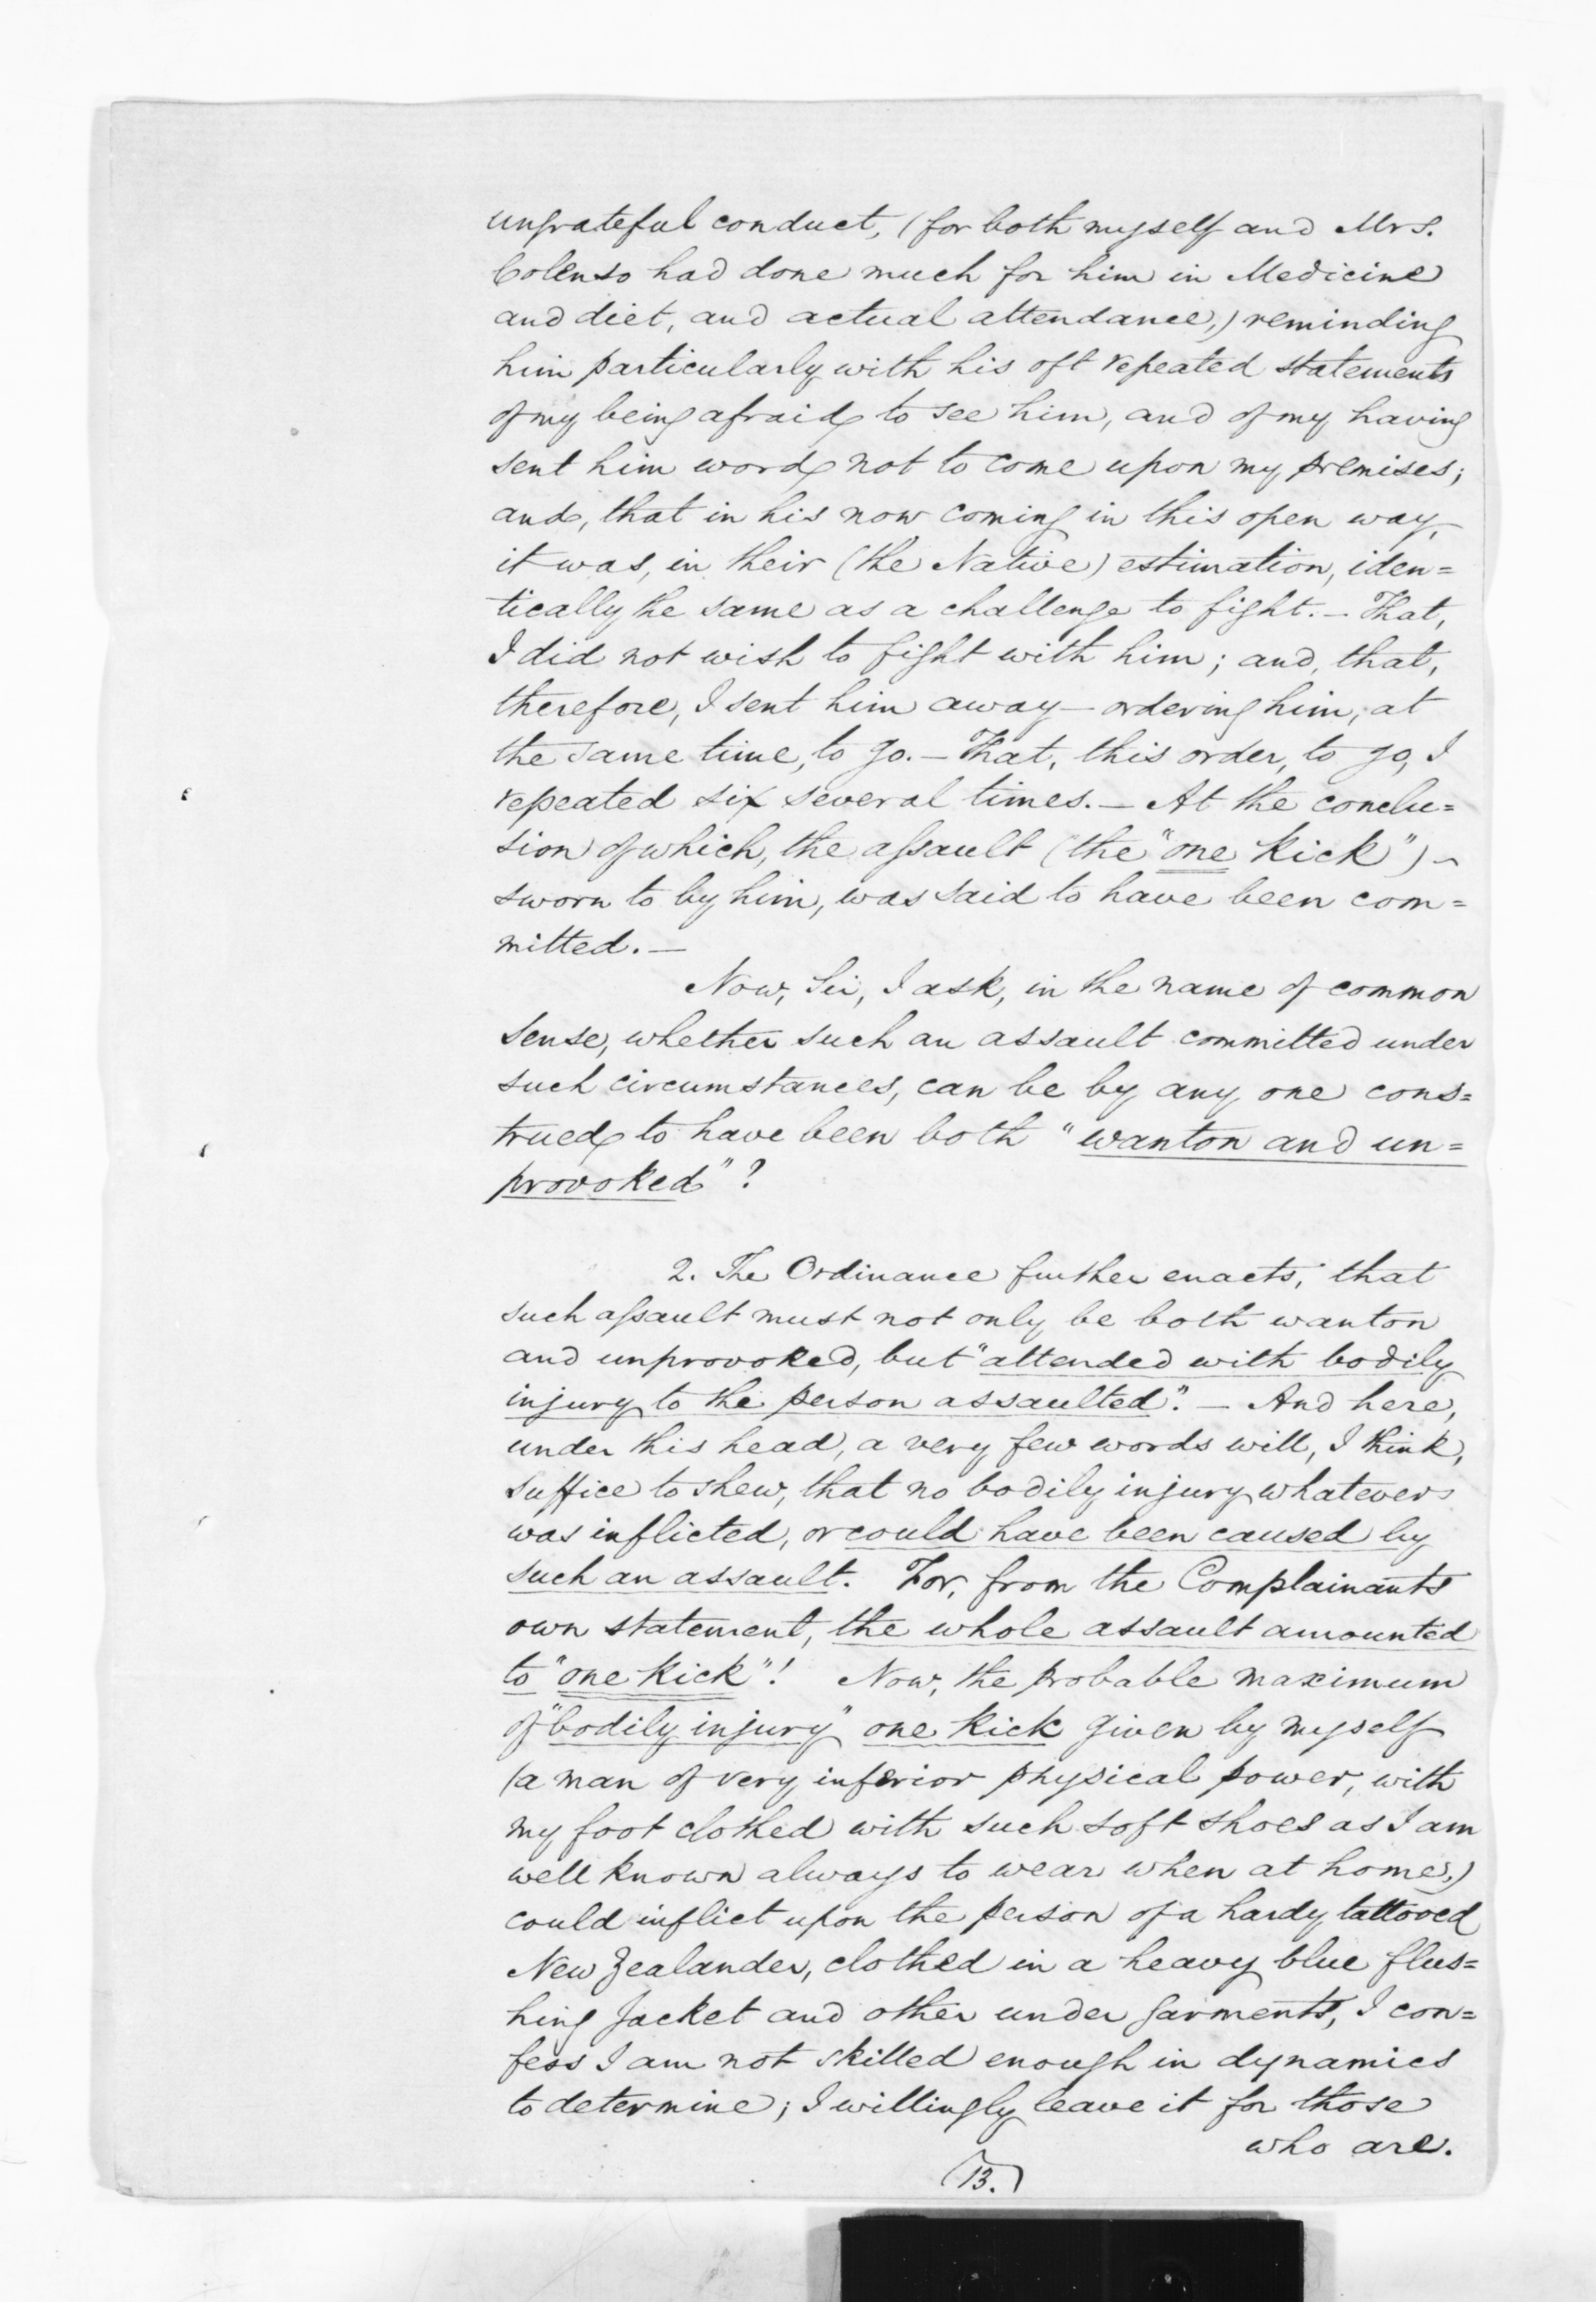 ungrateful conduct, (for both myself and Mrs.
Colenso had done much for him in Medicine
and diet, and actual attendance,) reminding
him particularly with his oft repeated statements
of my being afraid to see him, and of my having
sent him word not to come upon my premises;
and, that in his now coming in this open way,
it was, in their (the Native) estimation, iden=
tically the same as a challenge to fight. — That,
I did not wish to fight with him; and, that,
therefore, I sent him away — ordering him, at
the same time, to go. — That, this order, to go, I
repeated six several times. — At the conclu=
sion of which, the assault (the "one kick") —
sworn to by him, was said to have been com=
mitted. —
Now, Sir, I ask, in the name of common
sense, whether such an assault committed under
such circumstances, can be by any one cons=
trued to have been both "wanton and un=
provoked"?
2. The Ordinance further enacts, that
such assault must not only be both wanton
and unprovoked, but "attended with bodily
injury to the person assaulted". — And here,
under this head, a very few words will, I think,
suffice to shew, that no bodily injury whatever
was inflicted, or could have been caused by
such an assault. For, from the Complainants
own statement, the whole assault amounted
to "one kick"! Now, the probable maximum
of "bodily injury" one kick given by myself
(a man of very inferior physical power, with
my foot clothed with such soft shoes as I am
well known always to wear when at home,)
could inflict upon the person of a hardy tattooed
New Zealander, clothed in a heavy blue flus=
hing Jacket and other under garments, I con=
fess I am not skilled enough in dynamics
to determine; I willingly leave it for those
who are.
(13.)